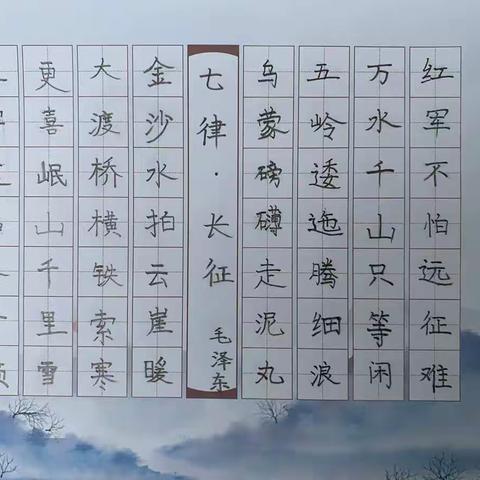 红军不怕远征难
万水千山只等闲
五岭逶迤腾细浪
乌蒙磅礴走泥丸
七律·长征
毛泽东
金沙水拍云崖暖
大渡桥横铁索寒
更喜岷山千里雪